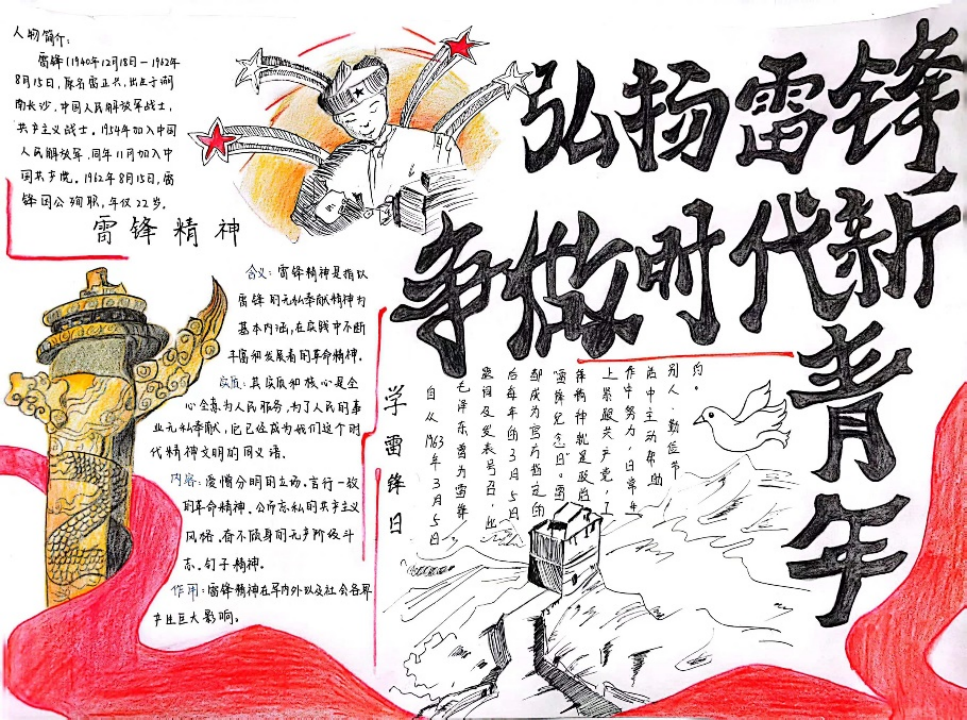 弘扬雷锋
争做时代新
青年
人物简介：
雷锋(1940年12月18日—1962年
8月15日，原名雷正兴，出生于湖
南长沙，中国人民解放军战士，
共产主义战士。1954年加入中国
人民解放军，同年11月加入中
国共产党。1962年8月15日，雷
锋因公殉职，年仅22岁。
雷锋精神
含义：雷锋精神是指以
雷锋的无私奉献精神为
基本内涵，在实践中不断
丰富和发展着的革命精神。
实质：其实质和核心是全
心全意为人民服务，为了人民的事
业无私奉献，它已经成为我们这个时
代精神文明的同义语。
内容：爱憎分明的立场、言行一致
的革命精神、公而忘私的共产主义
风格、奋不顾身的无产阶级斗
志、钉子精神。
作用：雷锋精神在军内外以及社会各界
产生巨大影响。
学雷锋日
自从1963年3月5日
毛泽东曾为雷锋
题词及发表号召，此
后每年的3月5日
都成为官方指定的
"雷锋纪念日"。雷
锋精神就是
上紧跟共产党，工
作中努力，日常生
活中主动帮助
别人、勤俭节
约。